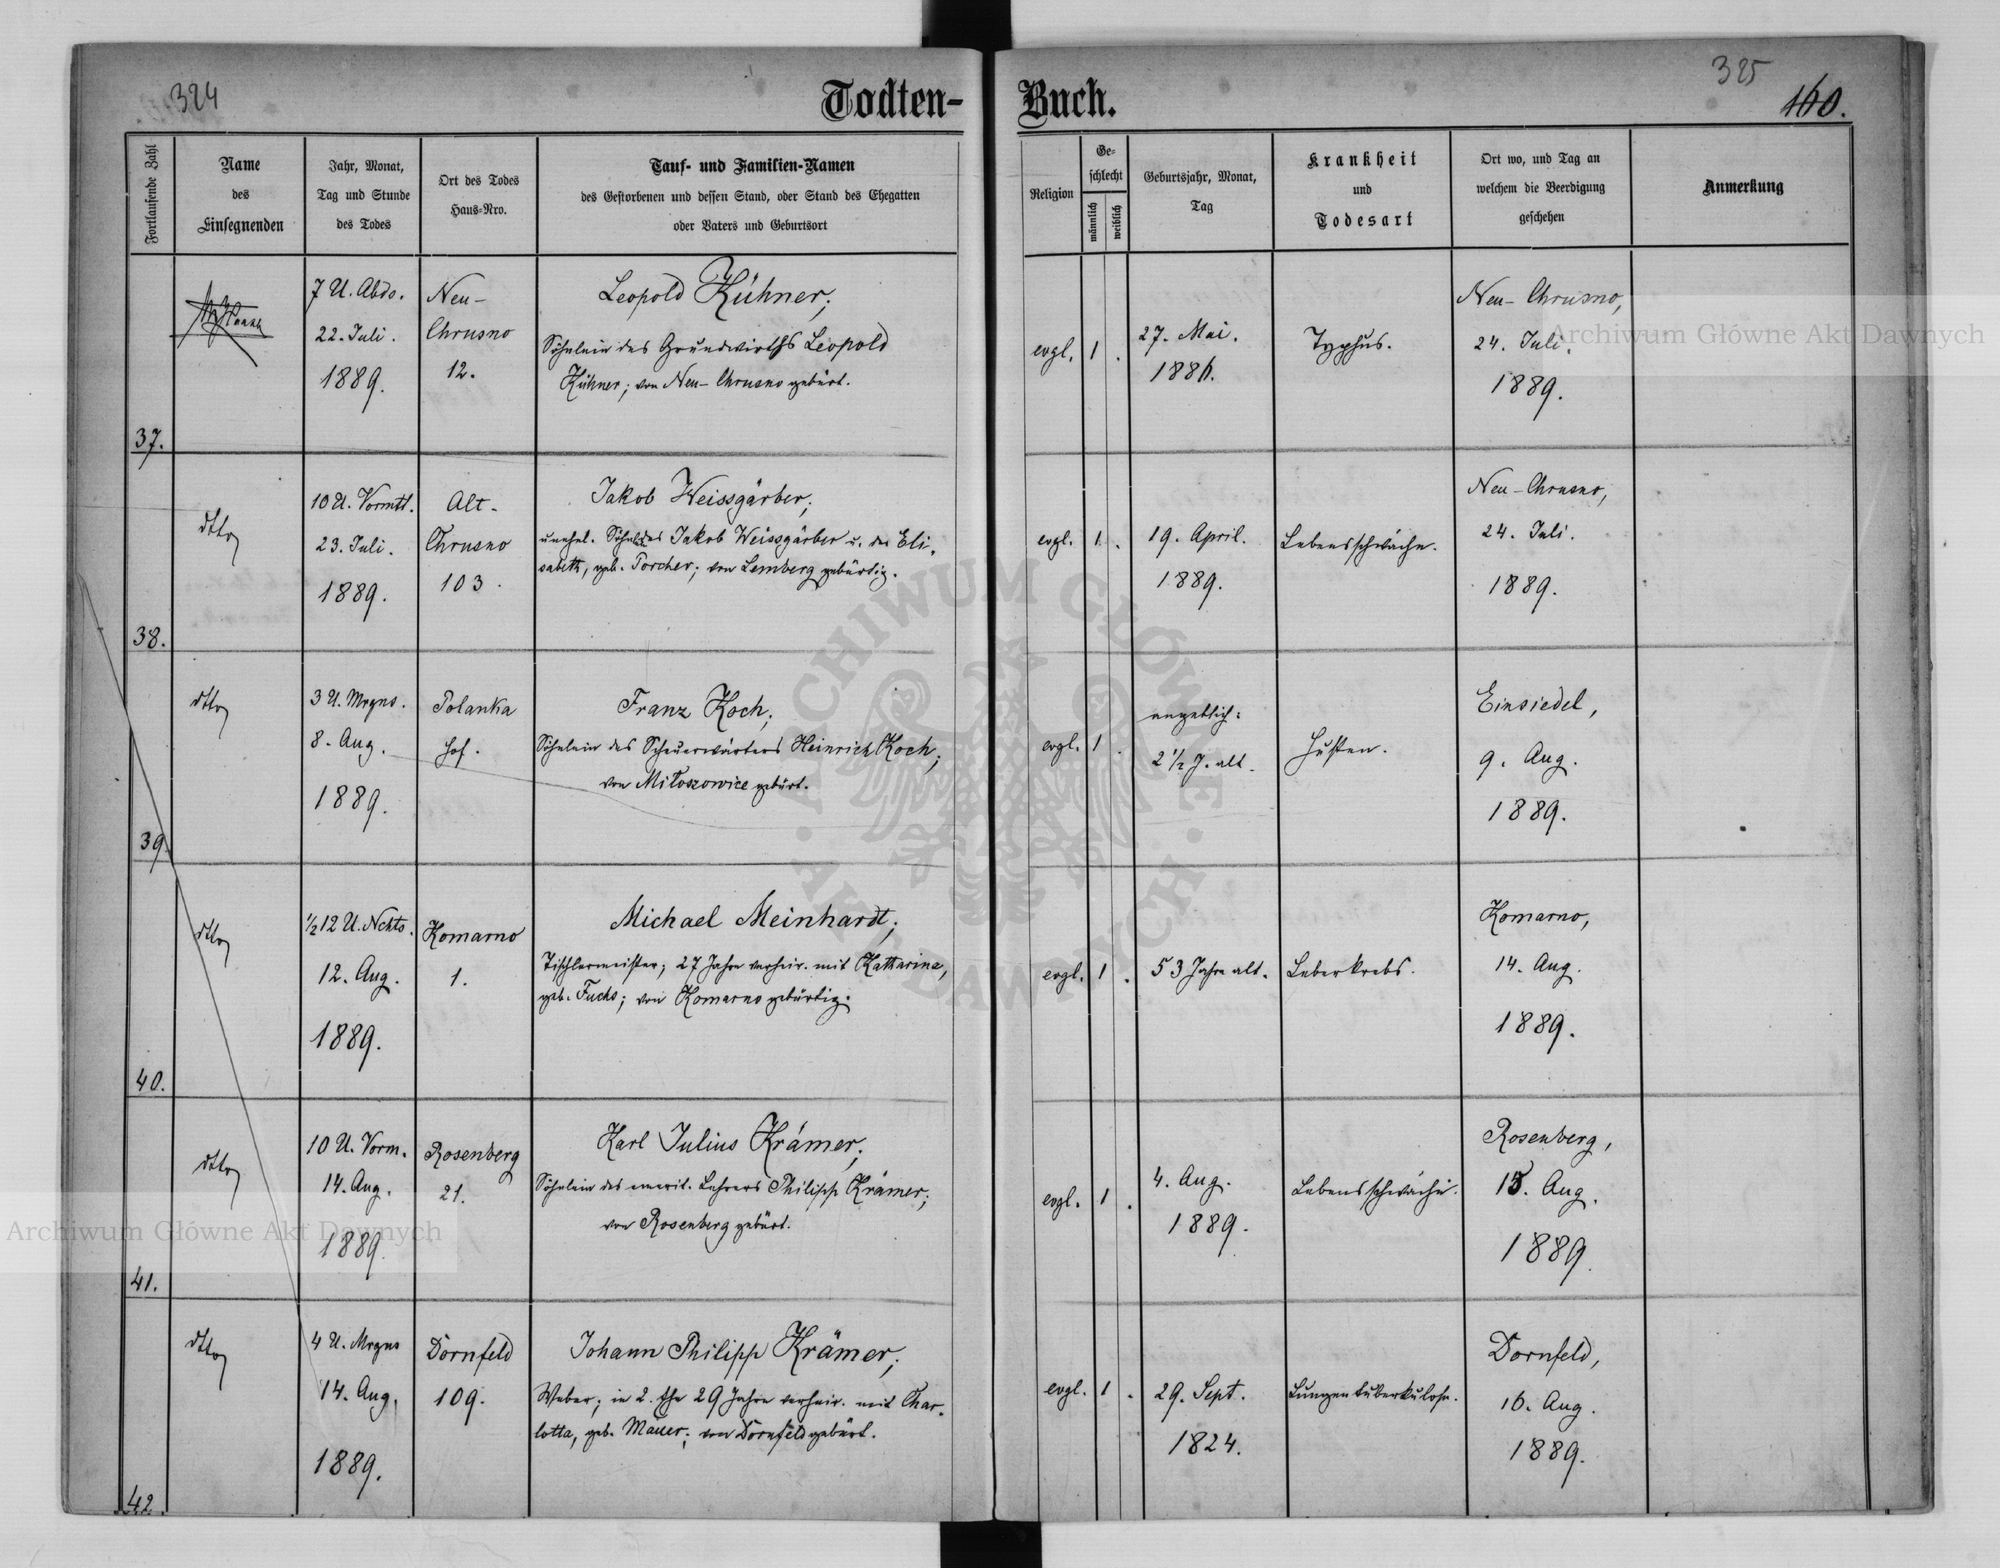 324
325
160.
Todten-Buch.
Fortlaufende Zahl
Name
des
Einsegnenden
Jahr, Monat,
Tag und Stunde
des Todes
Ort des Todes
Haus-Nro.
Tauf- und Familien-Namen
des Gestorbenen und dessen Stand, oder Stand des Ehegatten
oder Vaters und Geburtsort
Religion
Ge-
schlecht
männlich
weiblich
Geburtsjahr, Monat,
Tag
Krankheit
und
Todesart
Ort wo, und Tag an
welchem die Beerdigung
geschehen
Anmerkung
37.
7 U. Abds.
22. Juli.
1889.
Neu-
Chrusno
12.
Leopold Kühner;
Söhnlein des Grundwirths Leopold
Kühner; von Neu-Chrusno gebürt.
evgl.
1
.
27. Mai.
1886.
Typhus.
Neu-Chrusno,
24. Juli.
1889.
38.
dtto
10 U. Vormtt.
23. Juli.
1889.
Alt-
Chrusno
103.
Jakob Weissgärber;
unehel. Söhnl. des Jakob Weissgärber u. der Eli-
sabeth, geb. Porcher; von Lemberg gebürtig.
evgl.
1.
.
19. April.
1889.
Lebensschwäche.
Neu-Chrusno,
24. Juli.
1889.
39.
dtto
3 U. Mrgns.
8. Aug.
1889.
Polanka
Hof.
Franz Koch;
Söhnlein des Scheuerwärters Heinrich Koch;
von Miłoszowice gebürt.
evgl.
1
.
angeblich:
2 1/2 J. alt.
Husten.
Einsiedel,
9. Aug.
1889.
40.
dtto
1/2 12 U. Nchts.
12. Aug.
1889.
Komarno
1.
Michael Meinhardt;
Tischlermeister; 27 Jahre verheir. mit Katharina,
geb. Fuchs; von Komarno gebürtig.
evgl.
1
.
53 Jahre alt.
Leberkrebs.
Komarno,
14. Aug.
1889.
41.
dtto
10 U. Vorm.
14. Aug.
1889.
Rosenberg
21.
Karl Julius Krämer;
Söhnlein des emerit. Lehrers Philipp Krämer;
von Rosenberg gebürt.
evgl.
1
.
4. Aug.
1889.
Lebensschwäche.
Rosenberg,
15. Aug.
1889.
42.
dtto
4 U. Mrgns
14. Aug.
1889.
Dornfeld
109.
Johann Philipp Krämer;
Weber; in 2. Ehe 29 Jahre verheir. mit Char-
lotta, geb. Mauer; von Dornfeld gebürt.
evgl.
1
.
29. Sept.
1824.
Lungentuberkulose.
Dornfeld,
16. Aug.
1889.
Archiwum Główne Akt Dawnych
Archiwum Główne Akt Dawnych
ARCHIWUM GŁÓWNE
AKT DAWNYCH